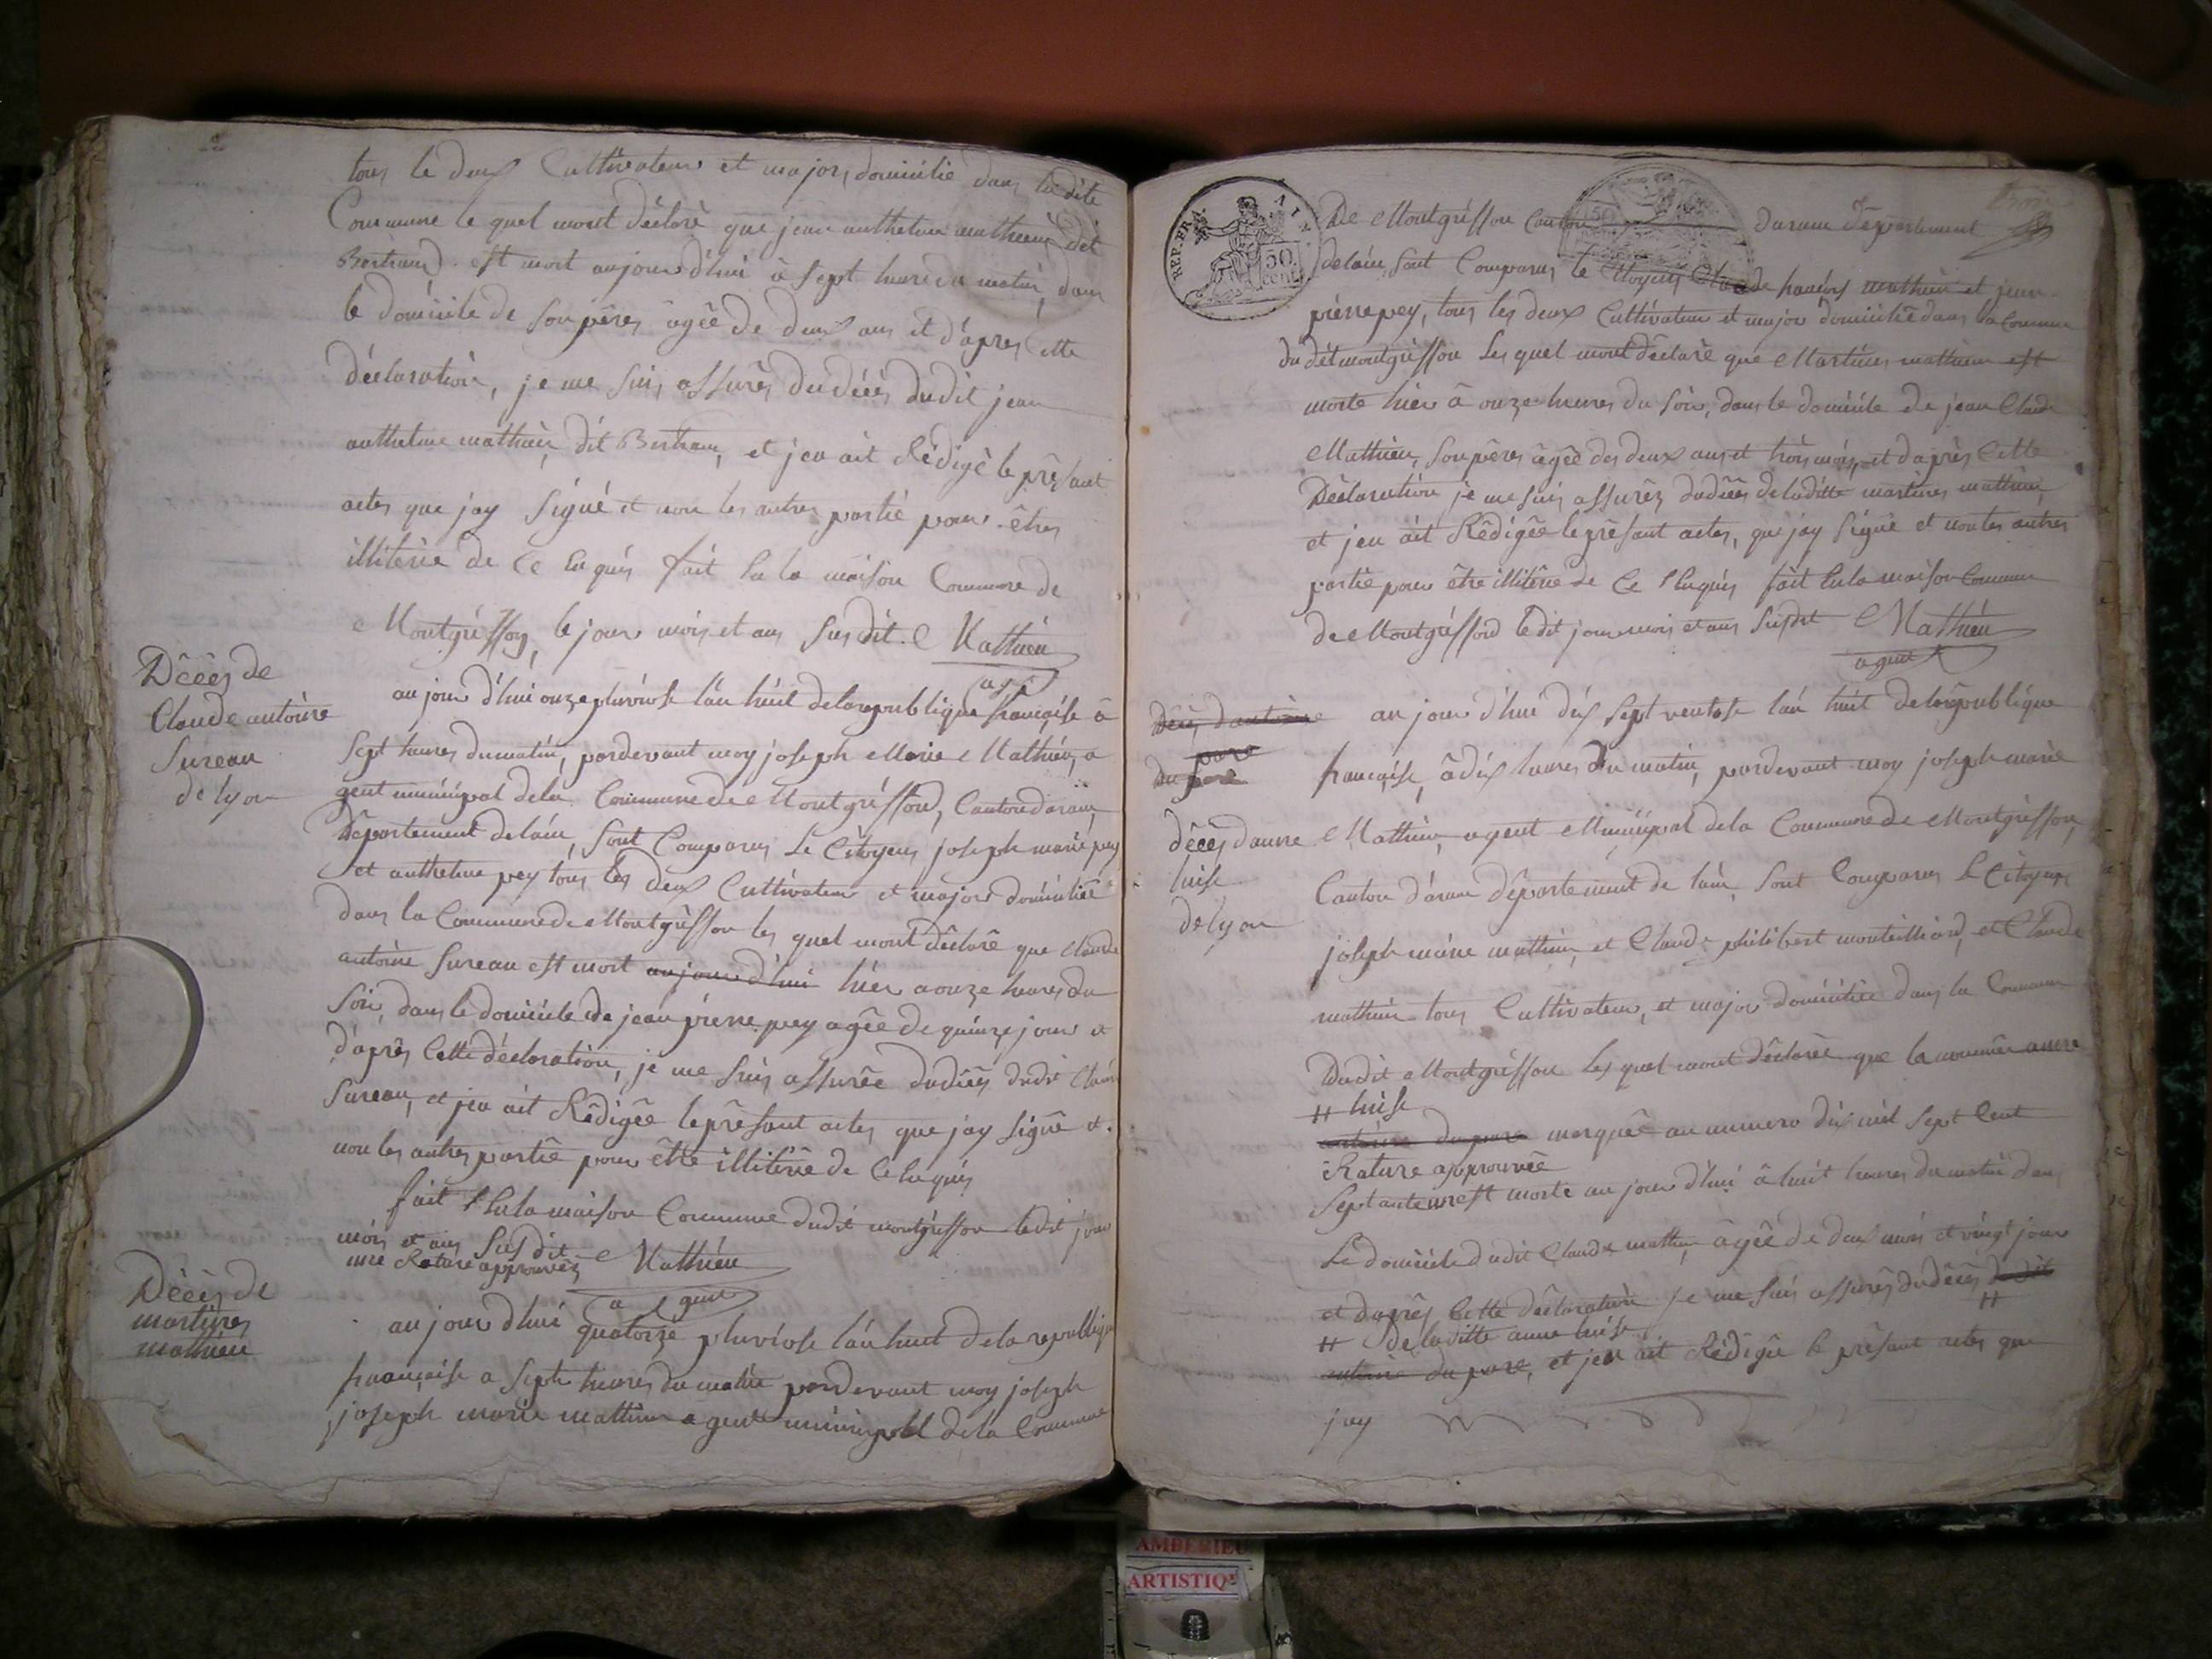 tous le deux Cultivateur et major domicilié dans ladite
Commune le quel mont déclaré que jean anthelme mathieu dit
Bertrand est mort aujourd'hui à sept heure du matin, dans
le domicile de son pères âgée de deux ans et d'apres cette
déclaration, je me suis assurès du décès dudit jean
anthelme mathieu dit Bertran, et jeu ait Rédigè le présant
actes que jay signé et non les autres partié pour êtres
illitérie de ce enquis fait en la maison Commune de
Montgrisson, le jour mois et ans susdit. Mathieu
agt
Décès de
Claude antoine
Sureau
de lyon
aujour d'hui onze pluviose l'an huit de la republique française à
sept heures du matin, pardevant moy joseph Marie Mathieu, a
gent municipal de la Commune de Montgriffond, Canton daran,
Département de lain, sont Comparus Le Citoyens joseph marie pey
et anthelme pey tous les deux Cultivateur et major domicilié
dans la Commune de Montgriffon les quel mont déclaré que Claude
antoine Sureau est mort aujourd'hui hier a onze heures du
soir, dans le domicile de jean pierre pey agée de quinze jour et
d'après Cette déclaration, je me suis assurée du décès dudit Claude
Sureau, et jeu ait Rédigée le présant actes que jay signé et
non les autres partié pour être illitérie de ce enquis
fait en la maison Commune dudit montgriffon ledit jour
mois et ans susdit
une Rature approuvée Mathieu
agent
Décès de
martines
mathieu
aujour d'hui quatorze pluviose l'an huit de la republique
française a sept heures du matin pardevant moy joseph
joseph marie mathieu agent municipal de la Commune
REP. FRA.
50
cent.
De Montgriffon Canton daran département
delain, sont Comparus le Citoyens Claude françois mathieu et jean
pierre pey, tous les deux Cultivateur et major domicilié dans la Commune
du dit montgriffon Les quel mont déclaré que Martines mathieu est
morte hier à onze heures du soir, dans le domicile de jean Claude
Mathieu, son pères âgée des deux ans et trois mois, et d'après Cette
Déclaration je me suis assurés du décès de laditte martines mathieu
et jeu ait Rédigée le présant actes, que jay signé et non les autres
partie pour être illitérie de ce enquis fait en la maison Commune
de Montgriffond le dit jour mois et ans susdit Mathieu
agent
Décès d'antoine
du parc
décès danne
luise
de lyon
aujour d'hui dix sept ventose l'an huit de la république
française, à dix heures du matin, pardevant moy joseph marie
Mathieu, agent Municipal de la Commune de Montgriffon,
Canton d'aran département de lain sont Comparus Le Citoyens
joseph marie mathieu, et Claude philibert monteilliard, et Claude
mathieu tous Cultivateur, et major domicilié dans la Commune
Dudit Montgriffon Les quel mont déclarée que la nommée anne
# luise
antoine du parc marquée au numero dix mil sept Cent
Rature approuvée
septante est morte aujour d'hui à huit heures du matin dans
Le domicile dudit Claude mathieu, âgée de deux mois et vingt jour
et d'après Cette déclaration je me suis assurés du décès dudit #
# de laditte anne luise
antoine du parc, et jeu ait Rédigée le présant actes que
jay
AMBERIEU
ARTISTIQ